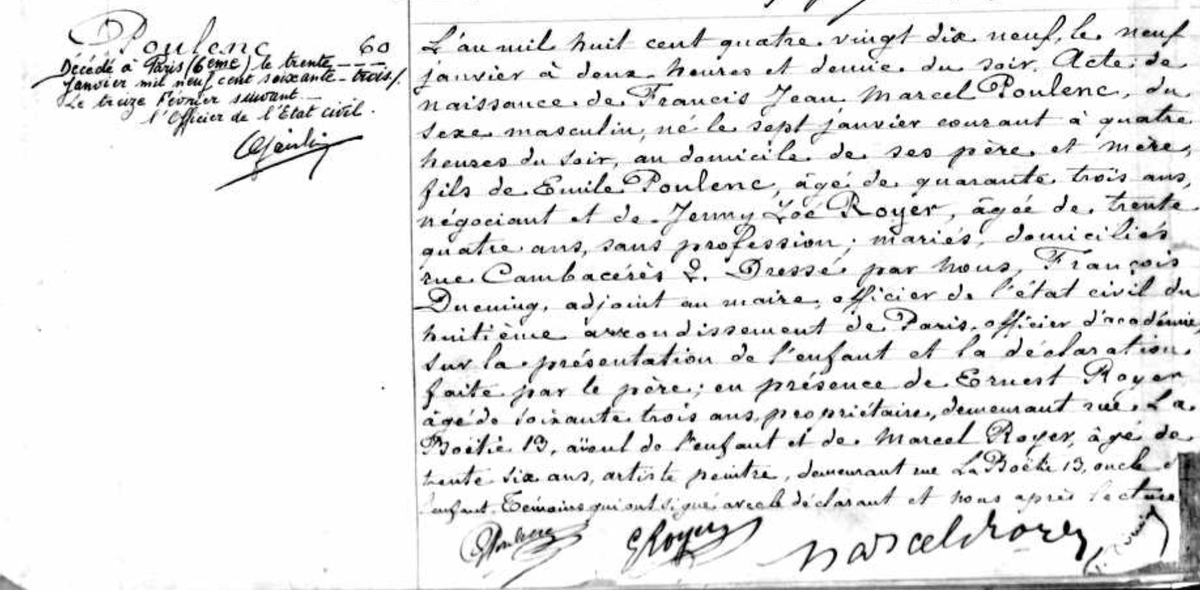 Poulenc 60
Décédé à Paris (6eme) le trente
janvier mil neuf cent soixante-trois/.
Le treize Février suivant
l'Officier de l'Etat civil.
L'an mil huit cent quatre vingt dix neuf, le neuf
janvier à deux heures et demie du soir. Acte de
naissance de Francis Jean Marcel Poulenc, du
sexe masculin, né le sept janvier courant à quatre
heures du soir, au domicile de ses père et mère,
fils de Emile Poulenc, âgé de quarante trois ans,
négociant et de Jenny Zoé Royer, âgée de trente
quatre ans, sans profession; mariés, domiciliés
rue Cambacérès 2. Dressé par nous, François
Ducuing, adjoint au maire, officier de l'état civil du
huitième arrondissement de Paris, officier d'académie,
sur la présentation de l'enfant et la déclaration
faite par le père; en présence de Ernest Royer
âgé de soixante trois ans, propriétaire, demeurant rue La
Boëtie 13, aïeul de l'enfant et de Marcel Royer, âgé de
trente six ans, artiste peintre, demeurant rue La Boëtie 13, oncle
l'enfant. Témoins qui ont signé avec le déclarant et nous après lecture
EPoulenc ERoyer Marcel Royer